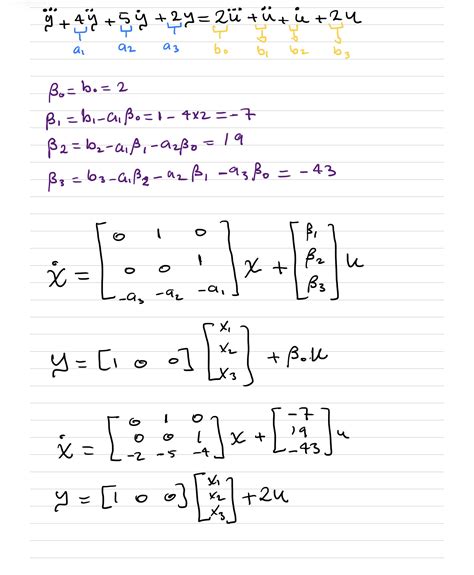 y⃛ + 4ÿ + 5ẏ + 2y = 2u⃛ + ü + u̇ + 2u
a₁ a₂ a₃ b₀ b₁ b₂ b₃
β₀ = b₀ = 2
β₁ = b₁ - a₁β₀ = 1 - 4×2 = -7
β₂ = b₂ - a₁β₁ - a₂β₀ = 19
β₃ = b₃ - a₁β₂ - a₂β₁ - a₃β₀ = -43
ẋ = [0 1 0; 0 0 1; -a₃ -a₂ -a₁] x + [β₁; β₂; β₃] u
y = [1 0 0] [x₁; x₂; x₃] + β₀u
ẋ = [0 1 0; 0 0 1; -2 -5 -4] x + [-7; 19; -43] u
y = [1 0 0] [x₁; x₂; x₃] + 2u